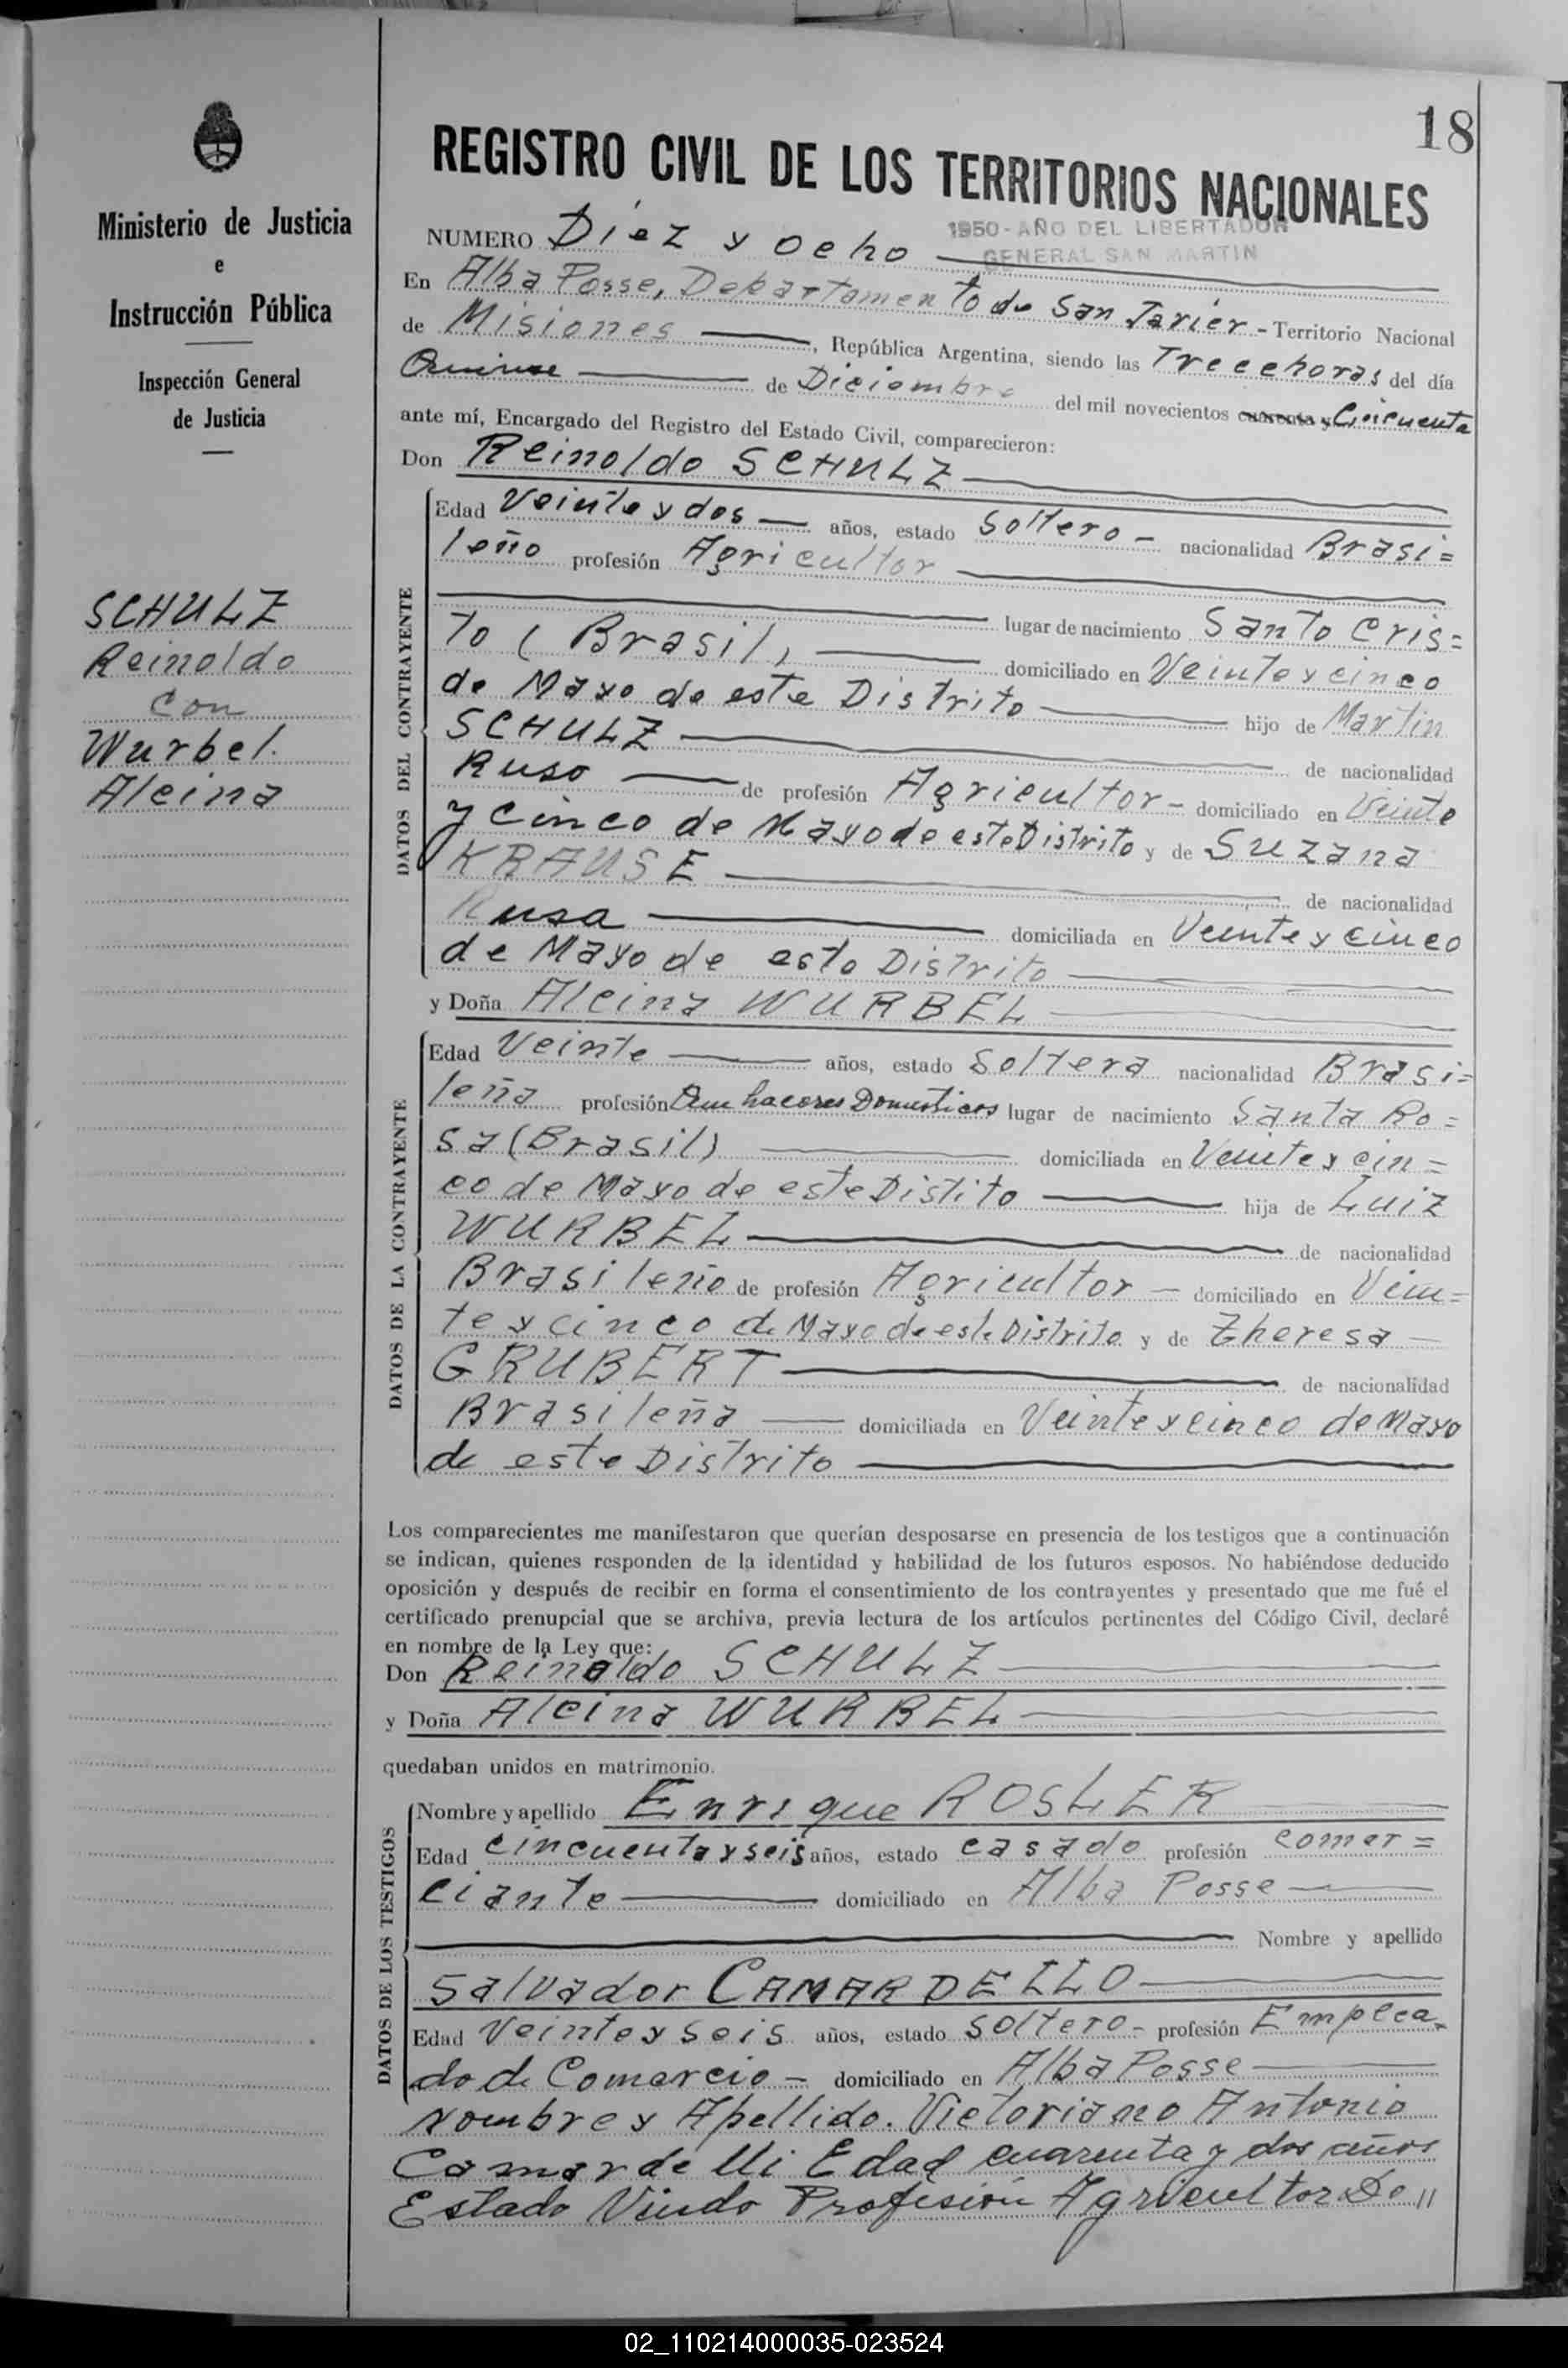 18
REGISTRO CIVIL DE LOS TERRITORIOS NACIONALES
1950 - AÑO DEL LIBERTADOR
GENERAL SAN MARTIN
Ministerio de Justicia
e
Instrucción Pública
Inspección General
de Justicia
SCHULZ
Reinoldo
con
Wurbel.
Alcina
NUMERO Diez y ocho
En Alba Posse, Departamento de San Javier - Territorio Nacional
de Misiones, República Argentina, siendo las Trece horas del día
Quinse de Diciembre del mil novecientos cuarenta y Cincuenta
ante mí, Encargado del Registro del Estado Civil, comparecieron:
Don Reinoldo SCHULZ
DATOS DEL CONTRAYENTE
Edad Veinte y dos años, estado Soltero - nacionalidad Brasi=
leño profesión Agricultor
lugar de nacimiento Santo Cris=
to (Brasil) domiciliado en Veinte y cinco
de Mayo de este Distrito hijo de Martin
SCHULZ de nacionalidad
Ruso de profesión Agricultor - domiciliado en Veinte
y cinco de Mayo de este Distrito y de Suzana
KRAUSE de nacionalidad
Rusa domiciliada en Veinte y cinco
de Mayo de este Distrito
y Doña Alcina WURBEL
DATOS DE LA CONTRAYENTE
Edad Veinte años, estado Soltera nacionalidad Brasi=
leña profesión Que haceres Domesticos lugar de nacimiento Santa Ro=
sa (Brasil) domiciliada en Veinte y cin=
co de Mayo de este Distito hija de Luiz
WURBEL de nacionalidad
Brasileño de profesión Agricultor - domiciliado en Vein=
te y cinco de Mayo de este Distrito y de Theresa
GRUBERT de nacionalidad
Brasileña domiciliada en Veinte y cinco de Mayo
de este Distrito
Los comparecientes me manifestaron que querían desposarse en presencia de los testigos que a continuación
se indican, quienes responden de la identidad y habilidad de los futuros esposos. No habiéndose deducido
oposición y después de recibir en forma el consentimiento de los contrayentes y presentado que me fué el
certificado prenupcial que se archiva, previa lectura de los artículos pertinentes del Código Civil, declaré
en nombre de la Ley que:
Don Reinoldo SCHULZ
y Doña Alcina WURBEL
quedaban unidos en matrimonio.
DATOS DE LOS TESTIGOS
Nombre y apellido Enrique ROSLER
Edad cincuenta y seis años, estado casado profesión comer=
ciante domiciliado en Alba Posse
Nombre y apellido
Salvador CAMARDELLO
Edad Veinte y seis años, estado Soltero - profesión Emplea-
do de Comercio - domiciliado en Alba Posse
Nombre y Apellido. Victoriano Antonio
Camardelli Edad cuarenta y dos años
Estado Viudo Profesión Agricultor Do //
02_110214000035-023524